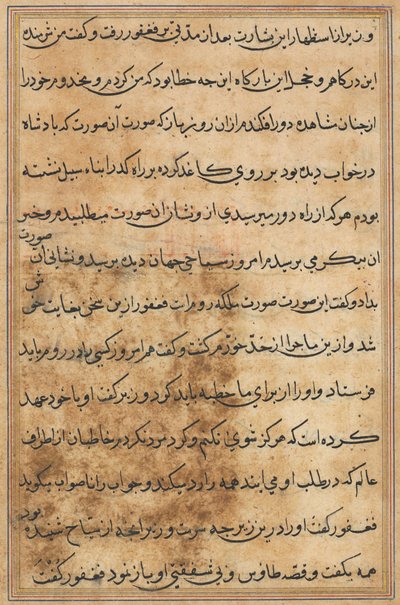 وزیر از استظهار این بشارت بعد از مدتی بر فغفور رفت و گفت من بنده
این درگاهم و خجل این بارگاه این چه خطا بود که من کردم و مخدوم خود را
از چنان شاهده دور افکندم از آن روز باز که صورت آن صورت که پادشاه
در خواب دیده بود بر روی کاغذ کرده بر راه گذر ابناء سبیل نشسته
بودم هر که از راه دور میرسیدی از و نشان آن صورت میطلبیدم و خبر
آن پیکر می پرسیدم امروز سیاحی جهان دیده برسید و نشانی آن صورت
بداد و گفت این صورت صورت ملکه روم است فغفور ازین سخن بغایت خوش
شد و ازین ماجرا از حد خورم گشت و گفت هم امروز کسی را در روم باید
فرستاد و او را از برای ما خطبه باید کرد وزیر گفت او با خود عهد
کرده است که هرگز شوی نکنم و گرد مرد نگردم خاطبان از اطراف
عالم که در طلب او می آیند همه را رد میکند و جواب را ناصواب میگوید
فغفور گفت او را درین ... چه سرت وزیر آنچه از سیاح شنیده بود
همه بگفت و قصه طاوس و بی شفقتی او باز نمود فغفور گفت